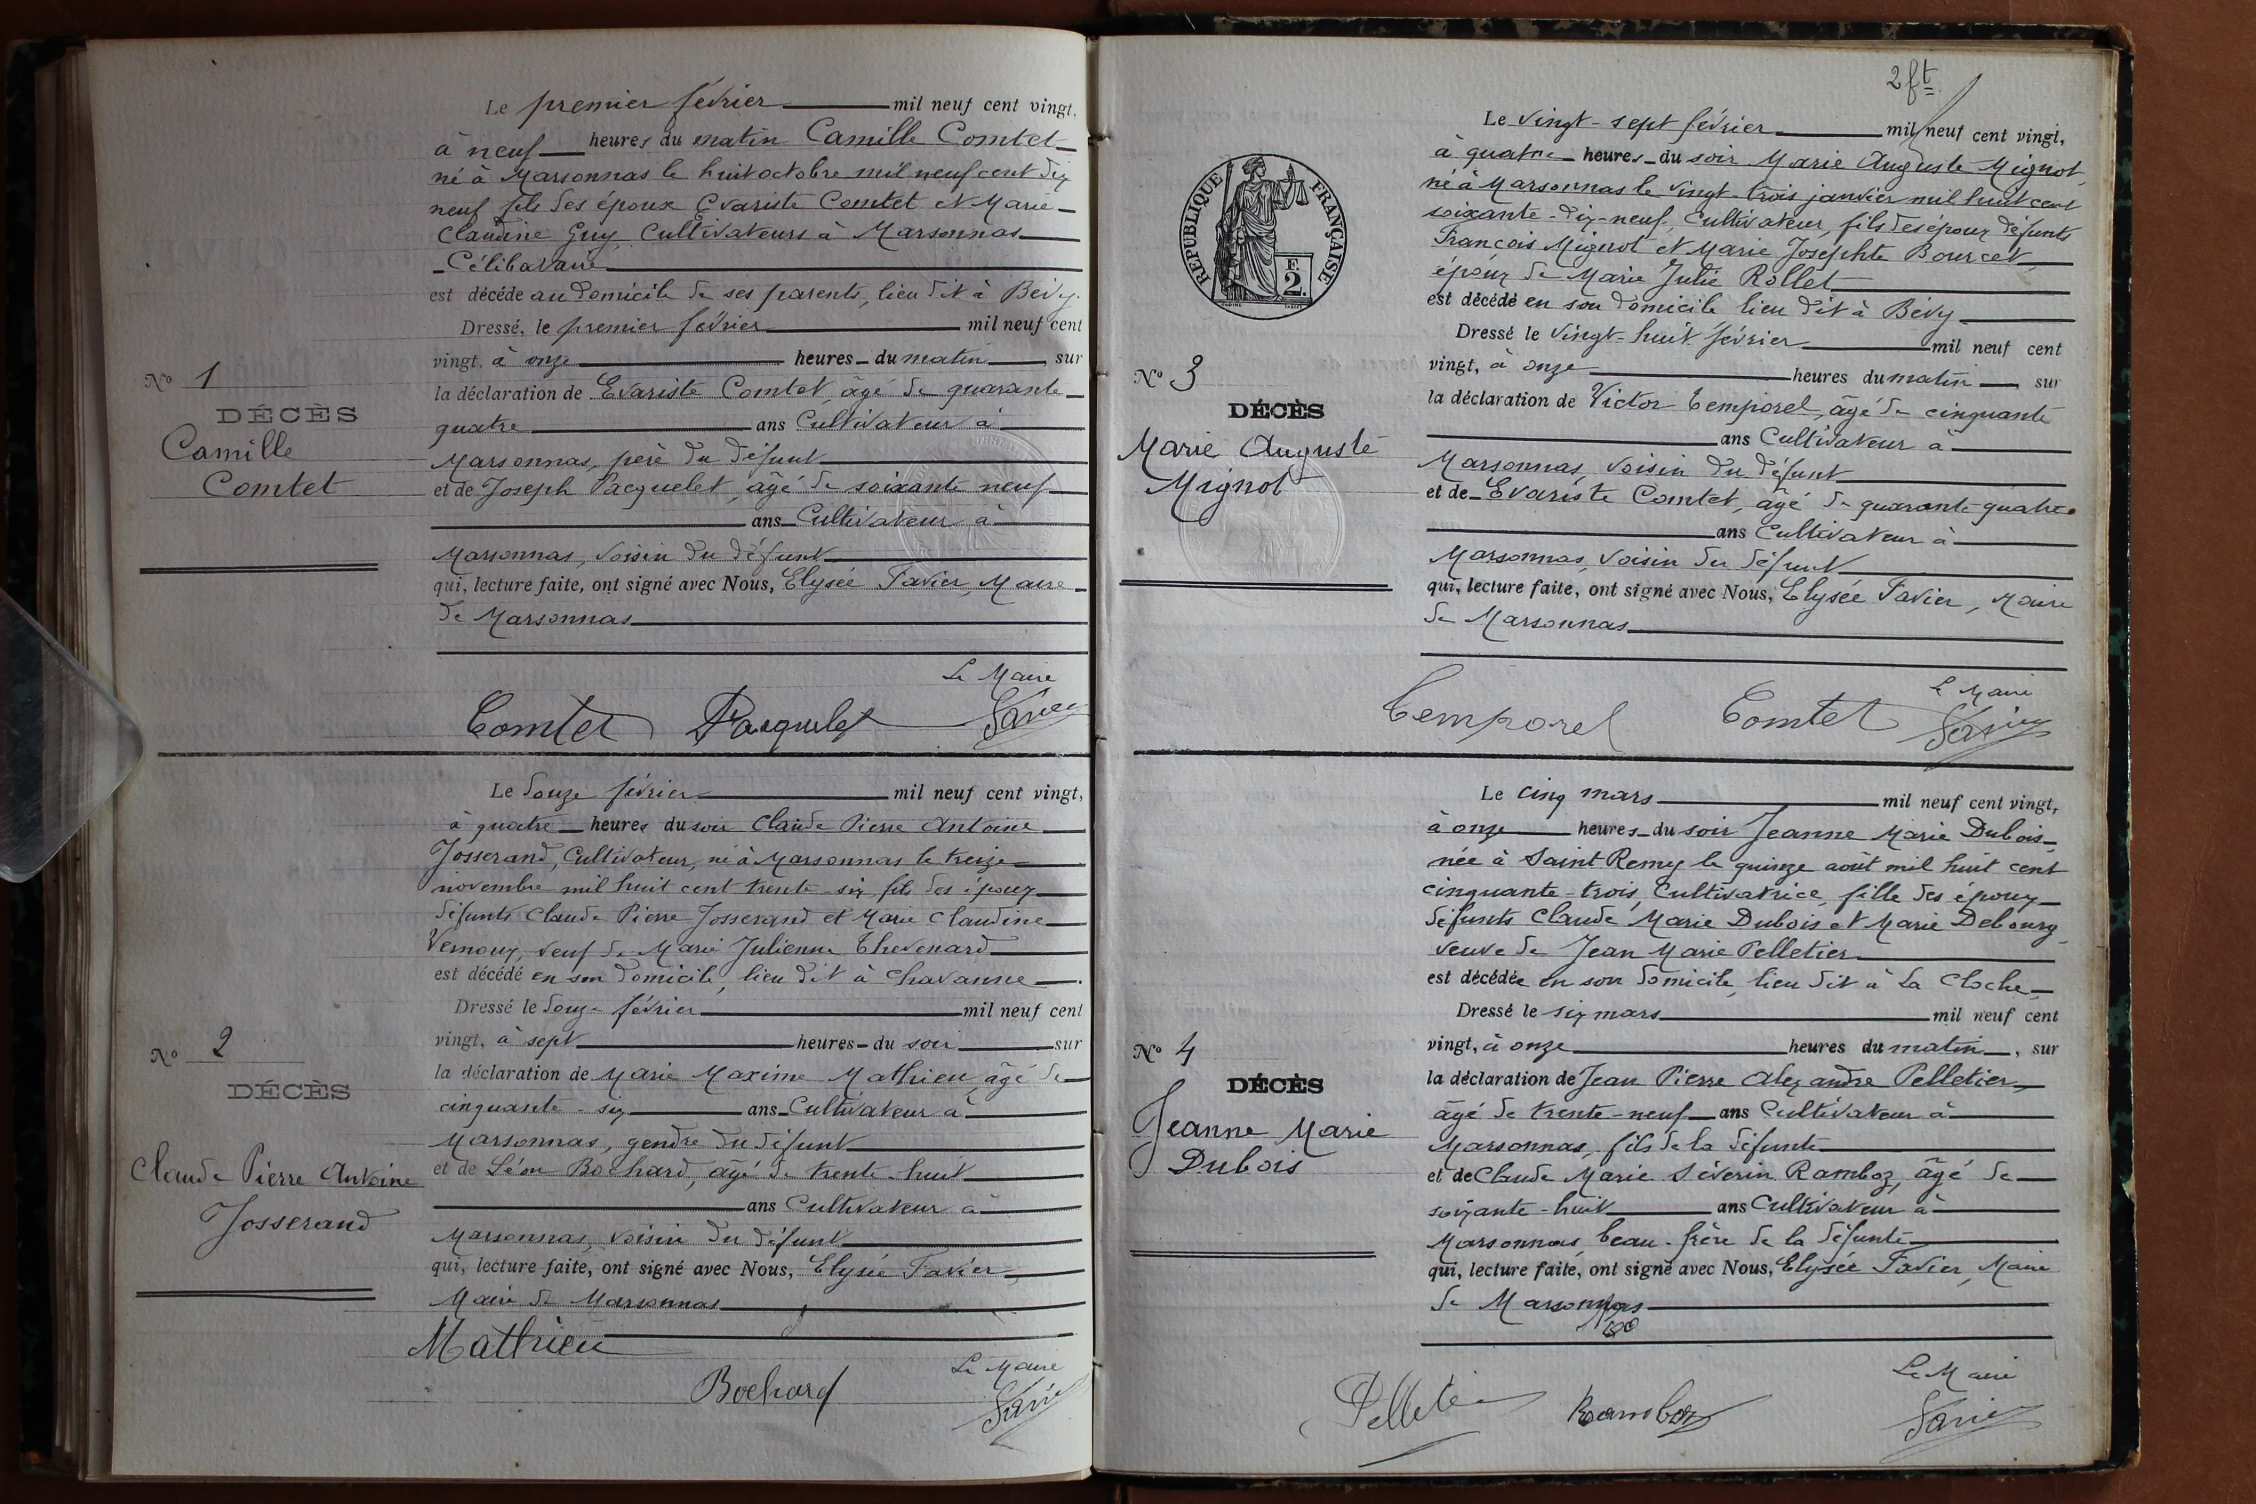 Le premier février mil neuf cent vingt,
à neuf heures du matin Camille Comtet
né à Marsonnas le huit octobre mil neuf cent dix
neuf fils des époux Evariste Comtet et Marie
Claudine Guy, Cultivateurs à Marsonnas
Célibataire
est décédé au domicile de ses parents, lieu dit à Bévy.
Dressé, le premier février mil neuf cent
vingt, à onze heures du matin, sur
la déclaration de Evariste Comtet, âgé de quarante
quatre ans Cultivateur à
Marsonnas, père du défunt
et de Joseph Pacquelet, âgé de soixante neuf
ans Cultivateur à
Marsonnas, voisin du défunt
qui, lecture faite, ont signé avec Nous, Elysée Favier, Maire
de Marsonnas
Le Maire
Comtet Pacquelet Favier
No 1
DÉCÈS
Camille
Comtet
Le douze février mil neuf cent vingt,
à quatre heures du soir Claude Pierre Antoine
Josserand, Cultivateur, né à Marsonnas le treize
novembre mil huit cent trente-six fils des époux
défunts Claude Pierre Josserand et Marie Claudine
Vernoux, veuf de Marie Julienne Thevenard
est décédé en son domicile, lieu dit à Chavanne.
Dressé le douze février mil neuf cent
vingt, à sept heures du soir sur
la déclaration de Marie Maxime Mathieu, âgé de
cinquante-six ans Cultivateur à
Marsonnas, gendre du défunt
et de Léon Bochard, âgé de trente-huit
ans Cultivateur à
Marsonnas, voisin du défunt
qui, lecture faite, ont signé avec Nous, Elysée Favier,
Maire de Marsonnas
Mathieu
Le Maire
Bochard Favier
No 2
DÉCÈS
Claude Pierre Antoine
Josserand
2 ft
RÉPUBLIQUE FRANÇAISE
F.
2.
Le vingt-sept février mil neuf cent vingt,
à quatre heures du soir Marie Auguste Mignot,
né à Marsonnas le vingt-trois janvier mil huit cent
soixante-dix-neuf, Cultivateur, fils des époux défunts
François Mignot et Marie Josephte Bourcet,
époux de Marie Julie Rollet
est décédé en son domicile lieu dit à Bévy
Dressé le vingt-huit février mil neuf cent
vingt, à onze heures du matin, sur
la déclaration de Victor Temporel, âgé de cinquante
ans Cultivateur à
Marsonnas, voisin du défunt
et de Evariste Comtet, âgé de quarante-quatre
ans Cultivateur à
Marsonnas, voisin du défunt
qui, lecture faite, ont signé avec Nous, Elysée Favier, Maire
de Marsonnas
Le Maire
Temporel Comtet Favier
No 3
DÉCÈS
Marie Auguste
Mignot
Le cinq mars mil neuf cent vingt,
à onze heures du soir Jeanne Marie Dubois,
née à Saint Remy le quinze août mil huit cent
cinquante-trois, Cultivatrice, fille des époux
défunts Claude Marie Dubois et Marie Debourg
veuve de Jean Marie Pelletier
est décédée en son domicile, lieu dit à La Cloche,
Dressé le six mars mil neuf cent
vingt, à onze heures du matin, sur
la déclaration de Jean Pierre Alexandre Pelletier,
âgé de trente-neuf ans Cultivateur à
Marsonnas, fils de la défunte
et de Claude Marie Séverin Ramboz, âgé de
soixante-huit ans Cultivateur à
Marsonnas, beau-frère de la défunte
qui, lecture faite, ont signé avec Nous, Elysée Favier, Maire
de Marsonnas
Le Maire
Pelletier Ramboz Favier
No 4
DÉCÈS
Jeanne Marie
Dubois